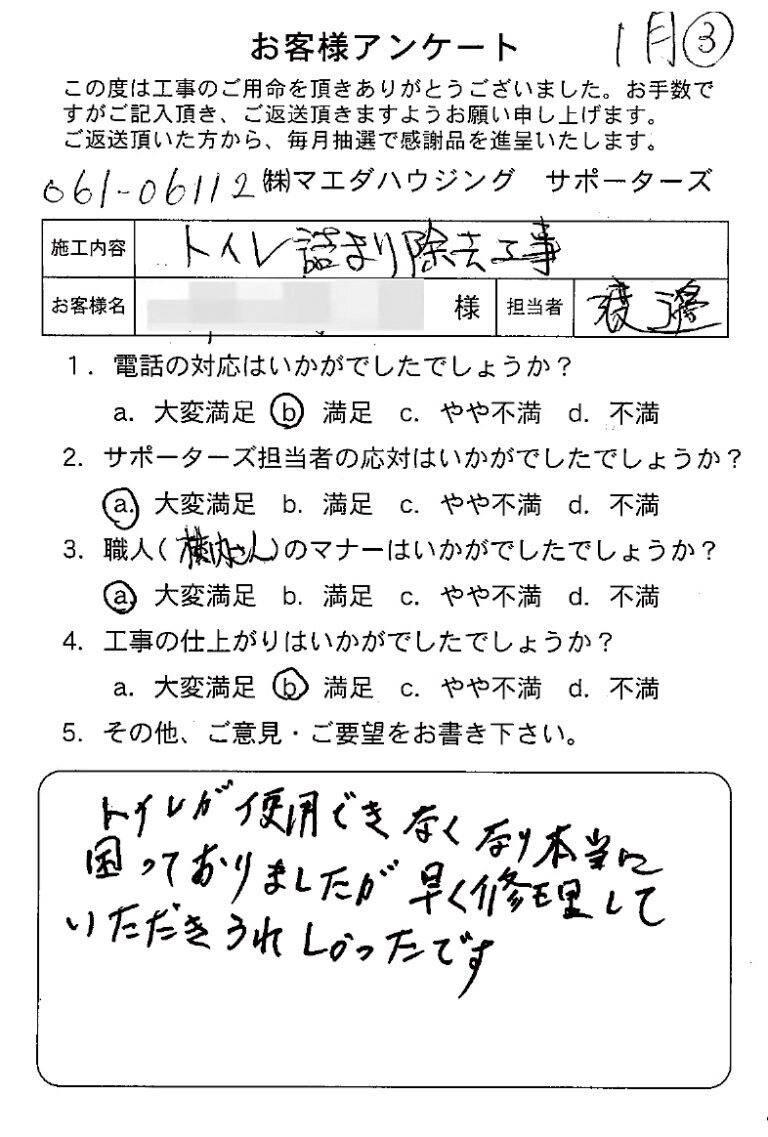 お客様アンケート 1月③
この度は工事のご用命を頂きありがとうございました。お手数で
すがご記入頂き、ご返送頂きますようお願い申し上げます。
ご返送頂いた方から、毎月抽選で感謝品を進呈いたします。
061-06112 ㈱マエダハウジング サポーターズ
施工内容 トイレ詰まり除去工事
お客様名 様 担当者 渡邊
1. 電話の対応はいかがでしたでしょうか?
a. 大変満足 b 満足 c. やや不満 d. 不満
2. サポーターズ担当者の応対はいかがでしたでしょうか?
a. 大変満足 b. 満足 c. やや不満 d. 不満
3. 職人( さん)のマナーはいかがでしたでしょうか?
a. 大変満足 b. 満足 c. やや不満 d. 不満
4. 工事の仕上がりはいかがでしたでしょうか?
a. 大変満足 b 満足 c. やや不満 d. 不満
5. その他、ご意見・ご要望をお書き下さい。
トイレが使用できなくなり本当に
困っておりましたが早く修理して
いただきうれしかったです